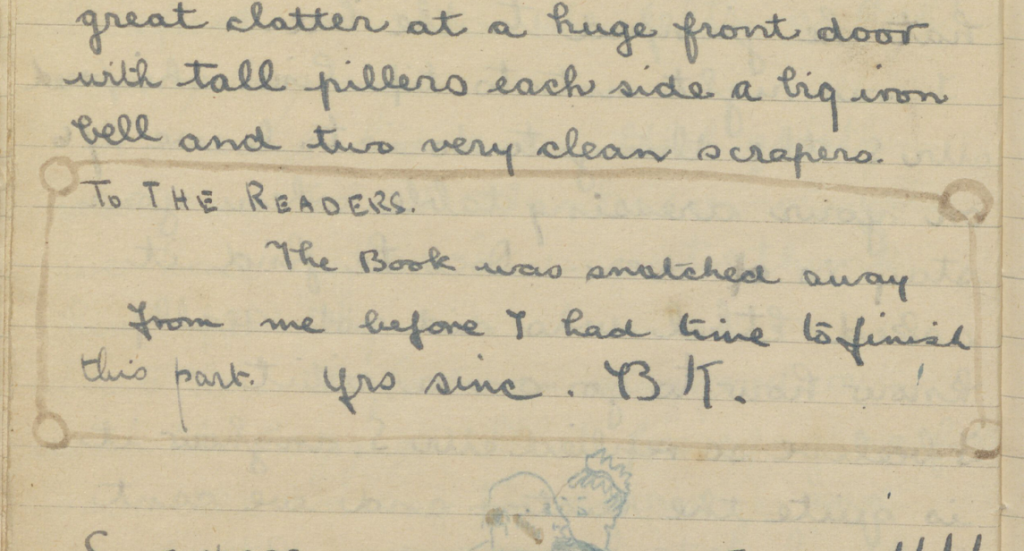 great clatter at a huge front door
with tall pillers each side a big iron
bell and two very clean scrapers.
To THE READERS.
The Book was snatched away
from me before I had time to finish
this part. yrs sinc. B K.